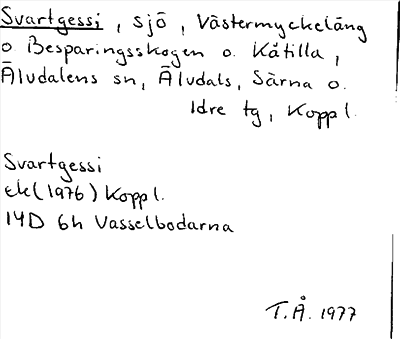 Svartgessi, sjö, Västermyckeläng
o Besparingsskogen o. Kåtilla,
Älvdalens sn, Älvdals, Särna o.
Idre tg, Koppl.
Svartgessi
ek (1976) Koppl.
14D 6h Vasselbodarna
T.Å. 1977